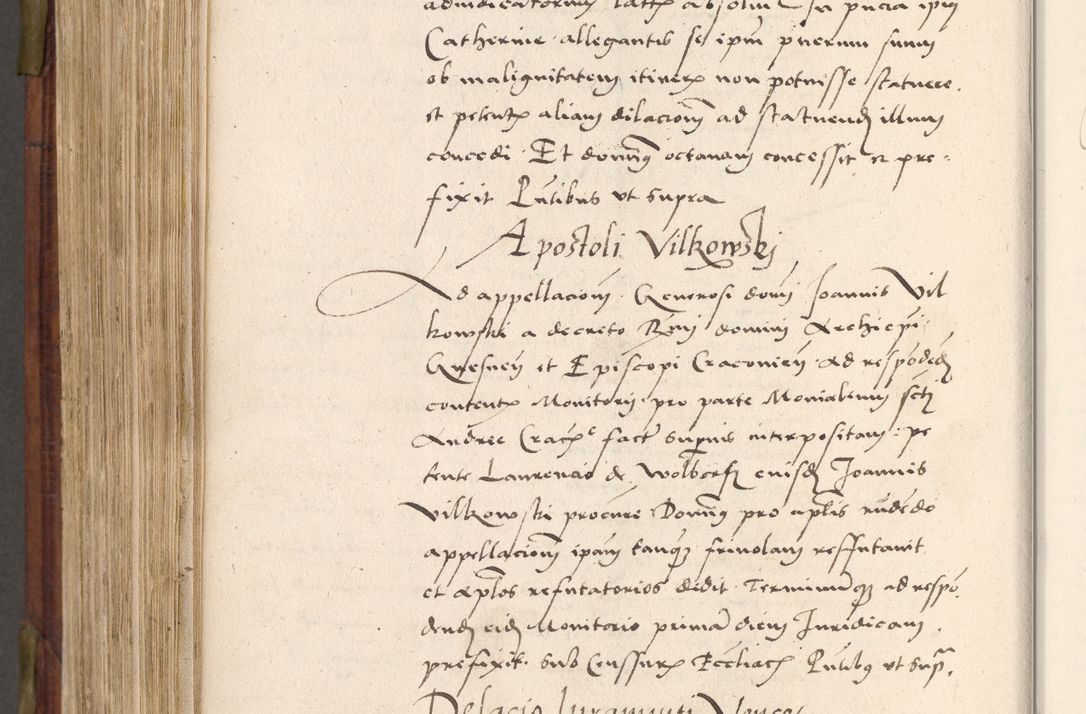 Catherine allegantis se ipm puerum suum
ob malignitatem itineris non potuisse statuere,
et petentis aliam dilacionem ad statuendum illum
concedi. Et dominus octavam concessit et pre-
fixit Pntibus ut supra
Apostoli Vilkowskj
Ad appellacionem Generosi domini Joannis Vil
kowski a decreto Rmi domini Archiepi
Gnesnen et Episcopi Cracovien ad respondend
content Monitorii pro parte Monialium scti
Andree Crac fact superius interpositam pe
tente Laurencio de Wolborz eiusd Joannis
Vilkowski procure Dominus pro aplis
appellacionem ipam tanq frivolam reffutavit
et aplos refutatorios dedit. Terminumq ad respo
dend eid Monitorio prima diem Juridicam
prefixit. sub Censuris Eccliac Pntibus ut supra.
Delacio Juramenti